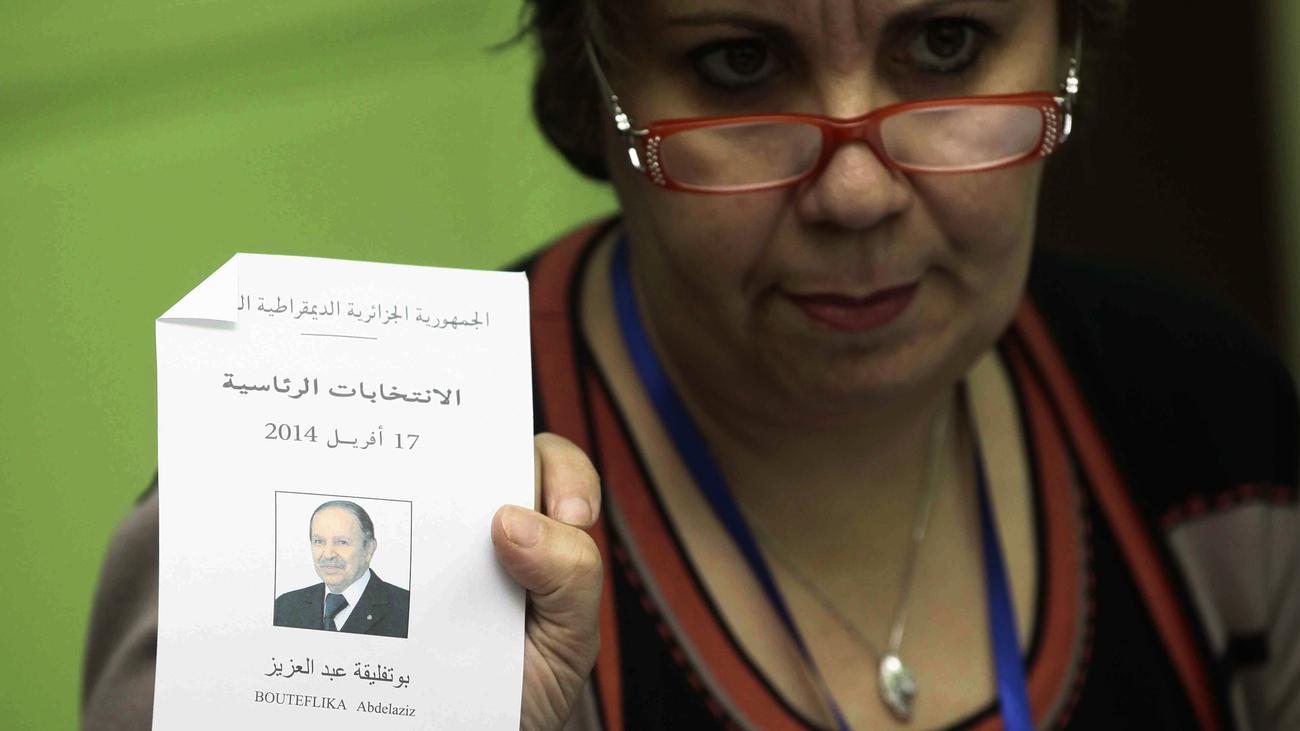 الجمهورية الجزائرية الديمقراطية
الانتخابات الرئاسية
17 أفريل 2014
بوتفليقة عبد العزيز
BOUTEFLIKA Abdelaziz